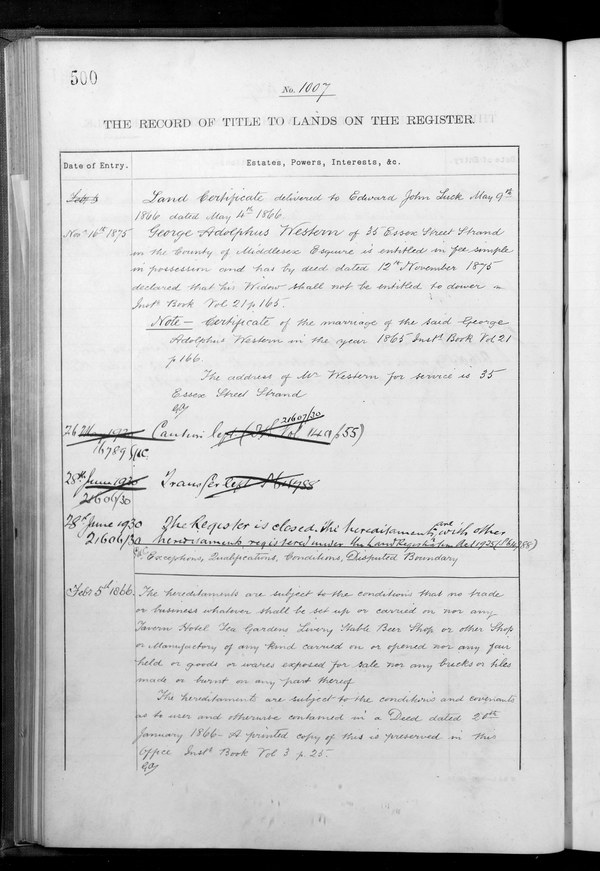 500
No. 1007
THE RECORD OF TITLE TO LANDS ON THE REGISTER.
Date of Entry.
Estates, Powers, Interests, &c.
Land Certificate delivered to Edward John Luck May 9th
1866 dated May 4th 1866.
Novr 16th 1875
George Adolphus Western of 35 Essex Street Strand
in the County of Middlesex Esquire is entitled in fee simple
in possession and has by deed dated 12th November 1875
declared that his Widow shall not be entitled to dower
Inst Book Vol 21 p 165.
Note — Certificate of the marriage of the said George
Adolphus Western in the year 1865 Inst Book Vol 21
p 166.
The address of Mr Western for service is 35
Essex Street Strand
26 May 1930
Caution left
21607/30
p 55)
16789
28th June 1930
21606/30
Transfer left
28th June 1930
21606/30
The Register is closed. The hereditaments are with other
hereditaments registered under the Land Registration Act 1925
Exceptions, Qualifications, Conditions, Disputed Boundary
Feb 5th 1866.
The hereditaments are subject to the conditions that no trade
or business whatever shall be set up or carried on nor any
Tavern Hotel Tea Gardens Livery Stable Beer Shop or other Shop
or Manufactory of any kind carried on or opened nor any fair
held or goods or wares exposed for sale nor any bricks or tiles
made or burnt on any part thereof
The hereditaments are subject to the conditions and covenants
as to user and otherwise contained in a Deed dated 20th
January 1866 - A printed copy of this is preserved in this
Office Inst Book Vol 3 p. 25.